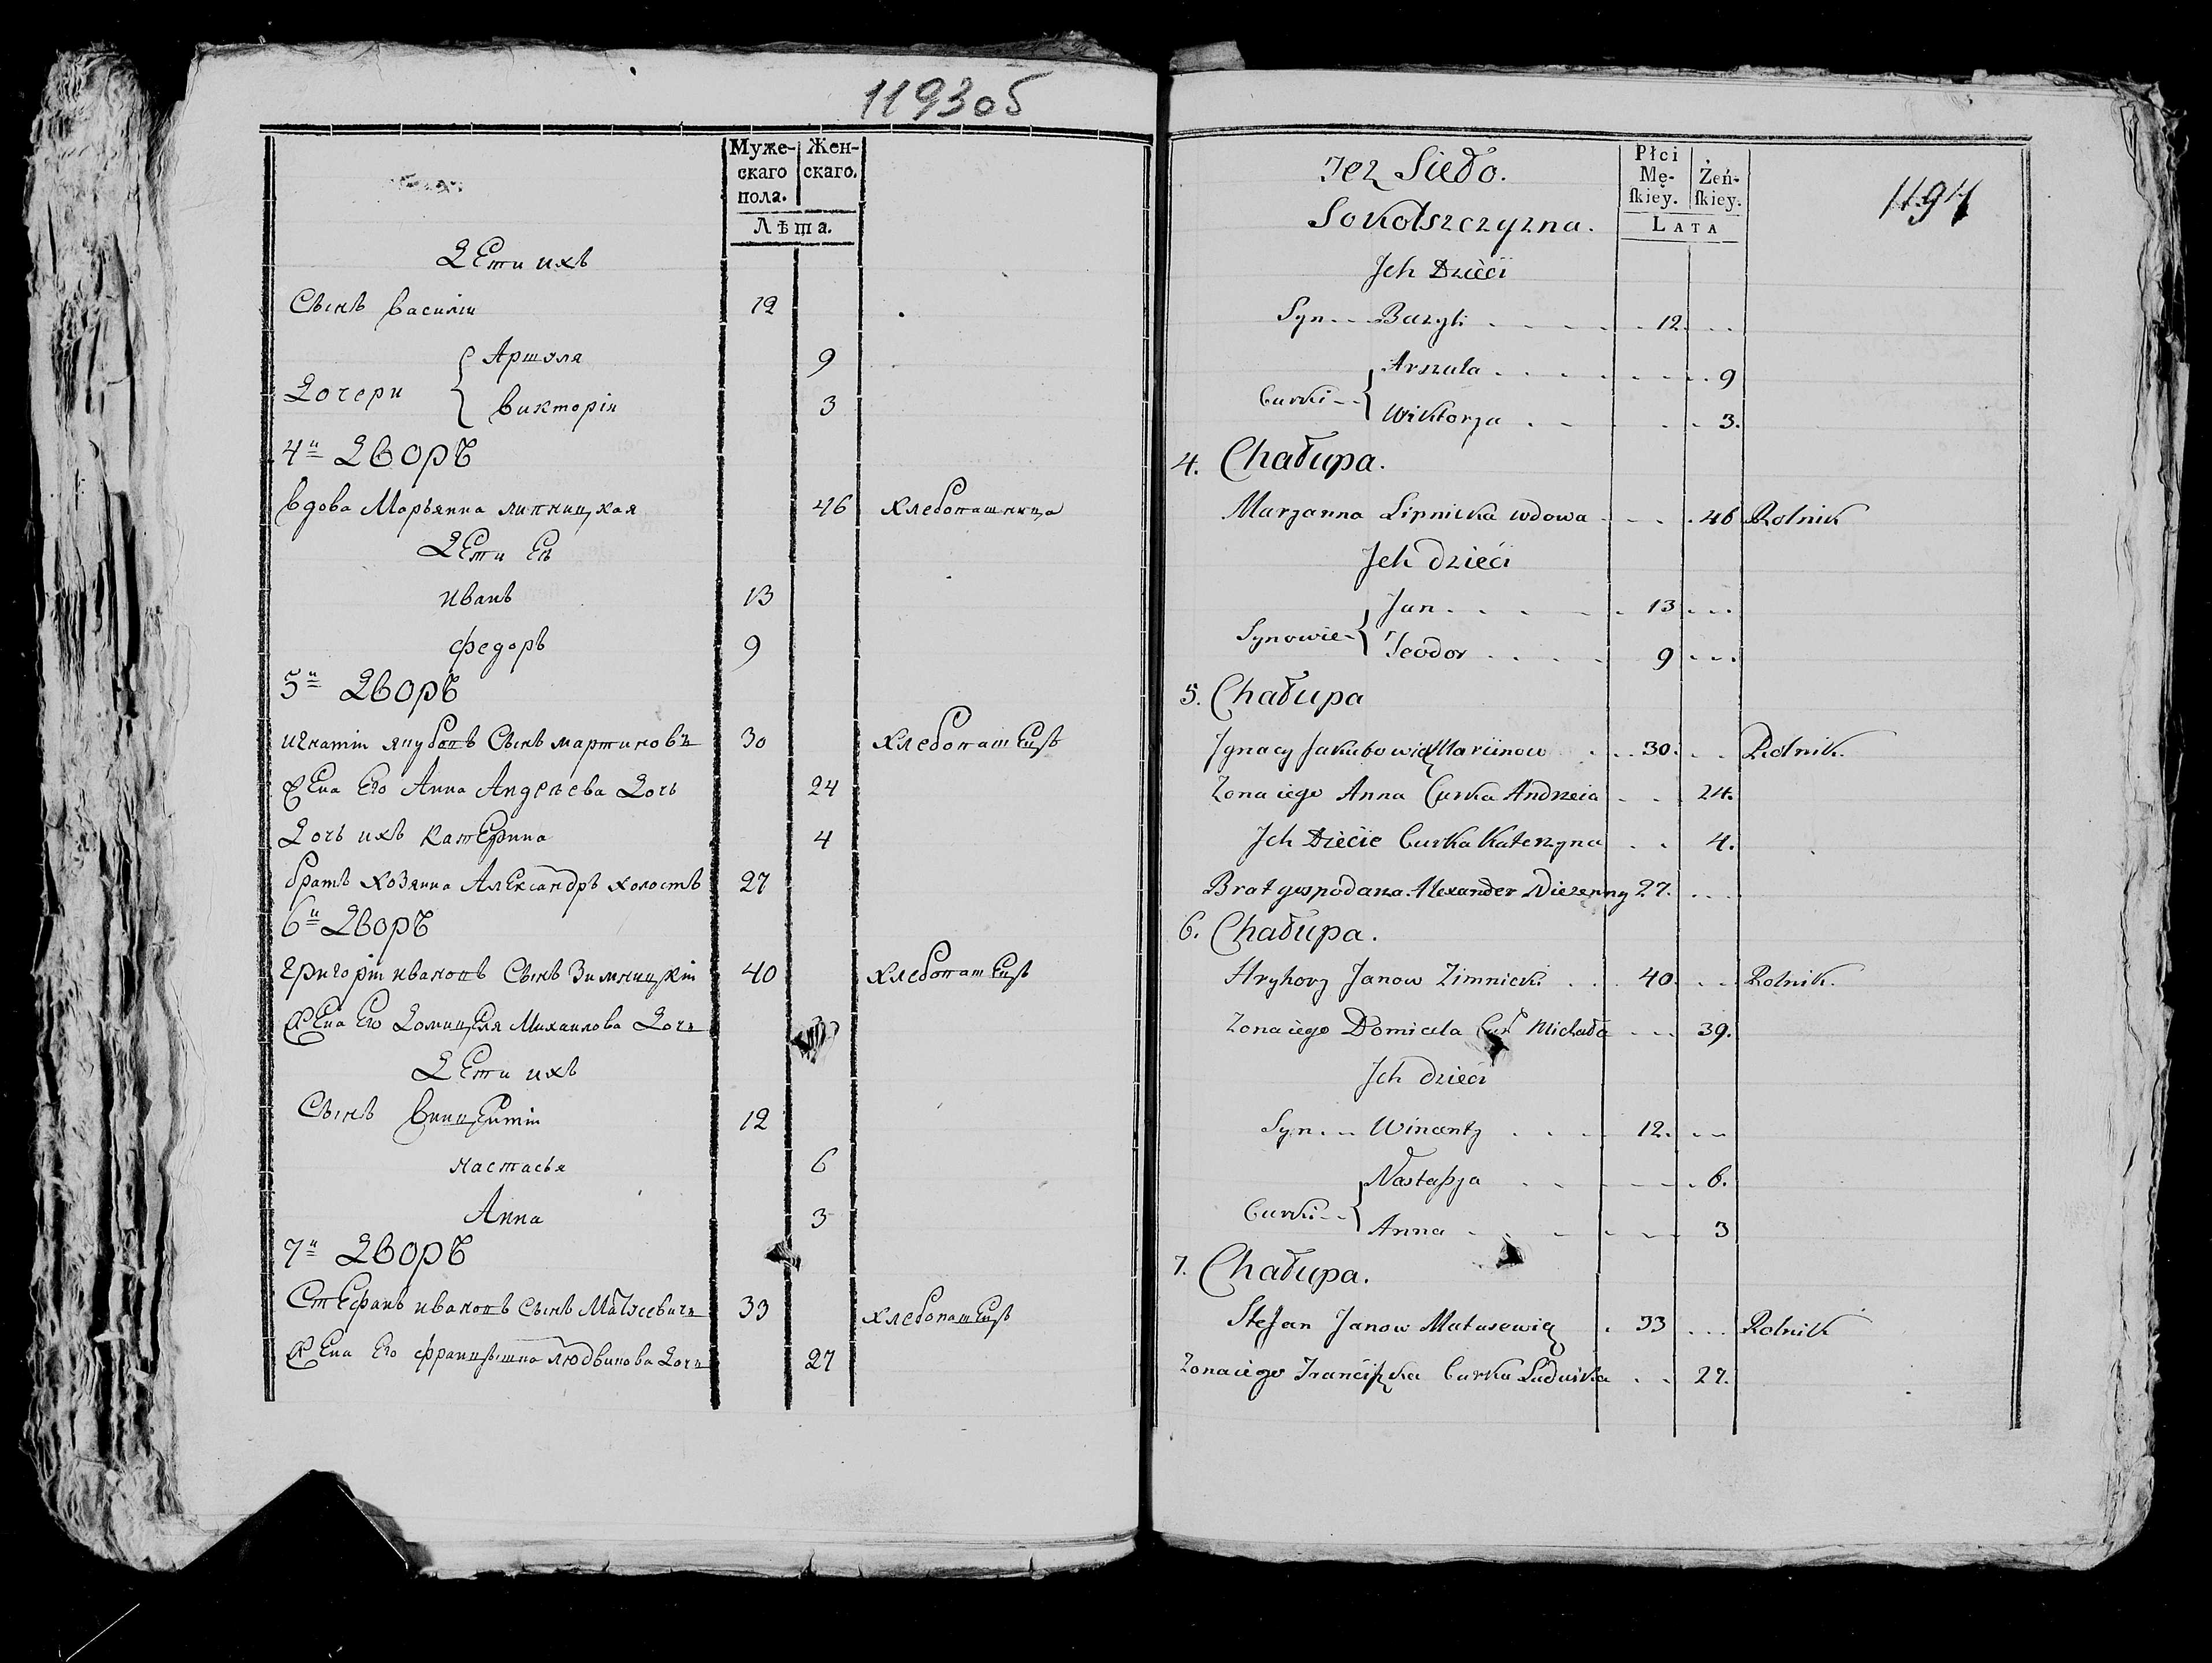 1193об
Муже-
скаго
пола.
Жен-
скаго.
Лѣта.
Дети ихъ
Сынъ Василiи 12
Аршуля 9
Дочери
Викторiя 3
4й Дворъ
Вдова Марьянна Липницкая 46 Хлебопашница
Дети Еѣ
Иванъ 13
Федоръ 9
5й Дворъ
Игнатiи Якубовъ Сынъ Мартиновъ 30 Хлебопашецъ
Жена Его Анна Андреева Дочь 24
Дочь ихъ Катерина 4
братъ хозяина Александръ холостъ 27
6й Дворъ
Григорiи Ивановъ Сынъ Зимницкiи 40 Хлебопашецъ
Жена Его Домицеля Михаилова Дочь
Дети ихъ
Сынъ Винцентiи 12
Настасья 6
Анна 3
7й Дворъ
Стефанъ Ивановъ Сынъ Матусевичъ 33 Хлебопашецъ
Жена Его Францышка Людвикова Дочь 27
Tez Sieło.
Sokolszczyzna.
Płci
Mę-
ſkiey.
Żeń-
ſkiey.
LATA
1194
Jch Dzieci
Syn Bazyli 12
Arszula 9
Curki
Wiktorya 3.
4. Chałupa.
Maryanna Lipnicka wdowa 46 Rolnik
Jch dzieci
Jan 13
Synowie
Teodor 9
5. Chałupa
Jgnacy Jakubowicz Marcinow 30. Rolnik.
Zona iego Anna Curka Andrzeia 24.
Jch Dziecie Curka Katerzyna 4.
Brat gospodarza Alexander Niezenny 27.
6. Chałupa.
Hryhory Janow Zimnicki 40. Rolnik.
Zona iego Domicela Cur. Michała 39.
Jch dzieci
Syn Wincenty 12.
Nastaßya 6.
Curki
Anna 3
7. Chałupa.
Stefan Janow Matusewicz 33 Rolnik
Zona iego Franciszka Curka Ludwika 27.